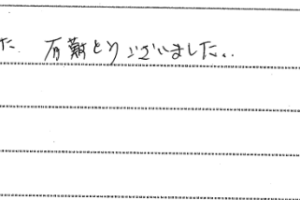 た 有難とうございました.